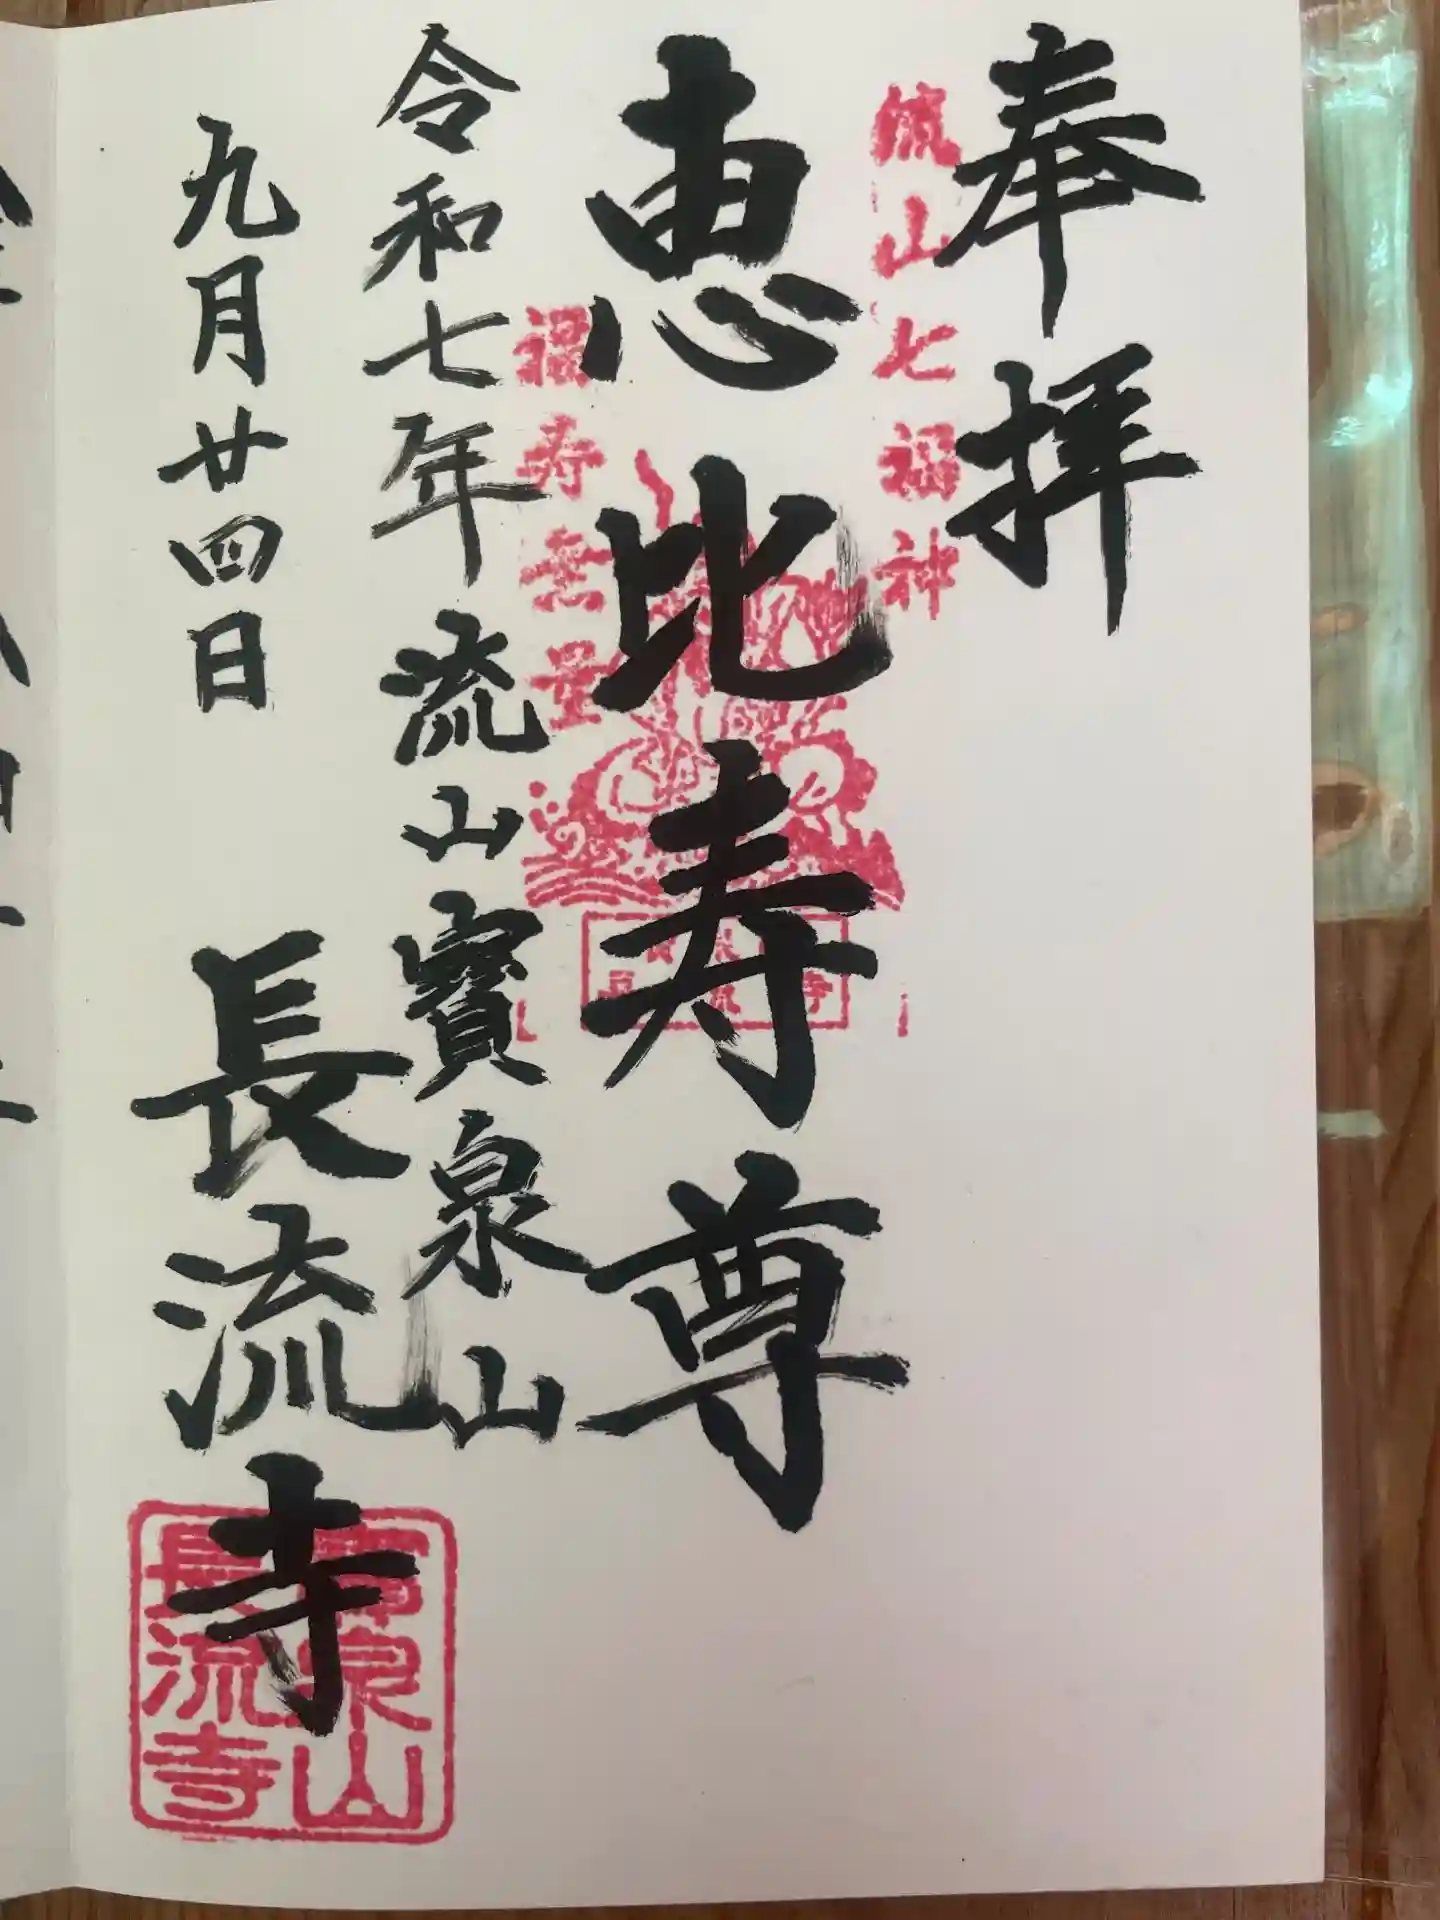 奉拝
流山七福神
恵比寿尊
福寿無量
令和七年 流山 寶泉山
九月廿四日 長流寺
寳泉山
長流寺